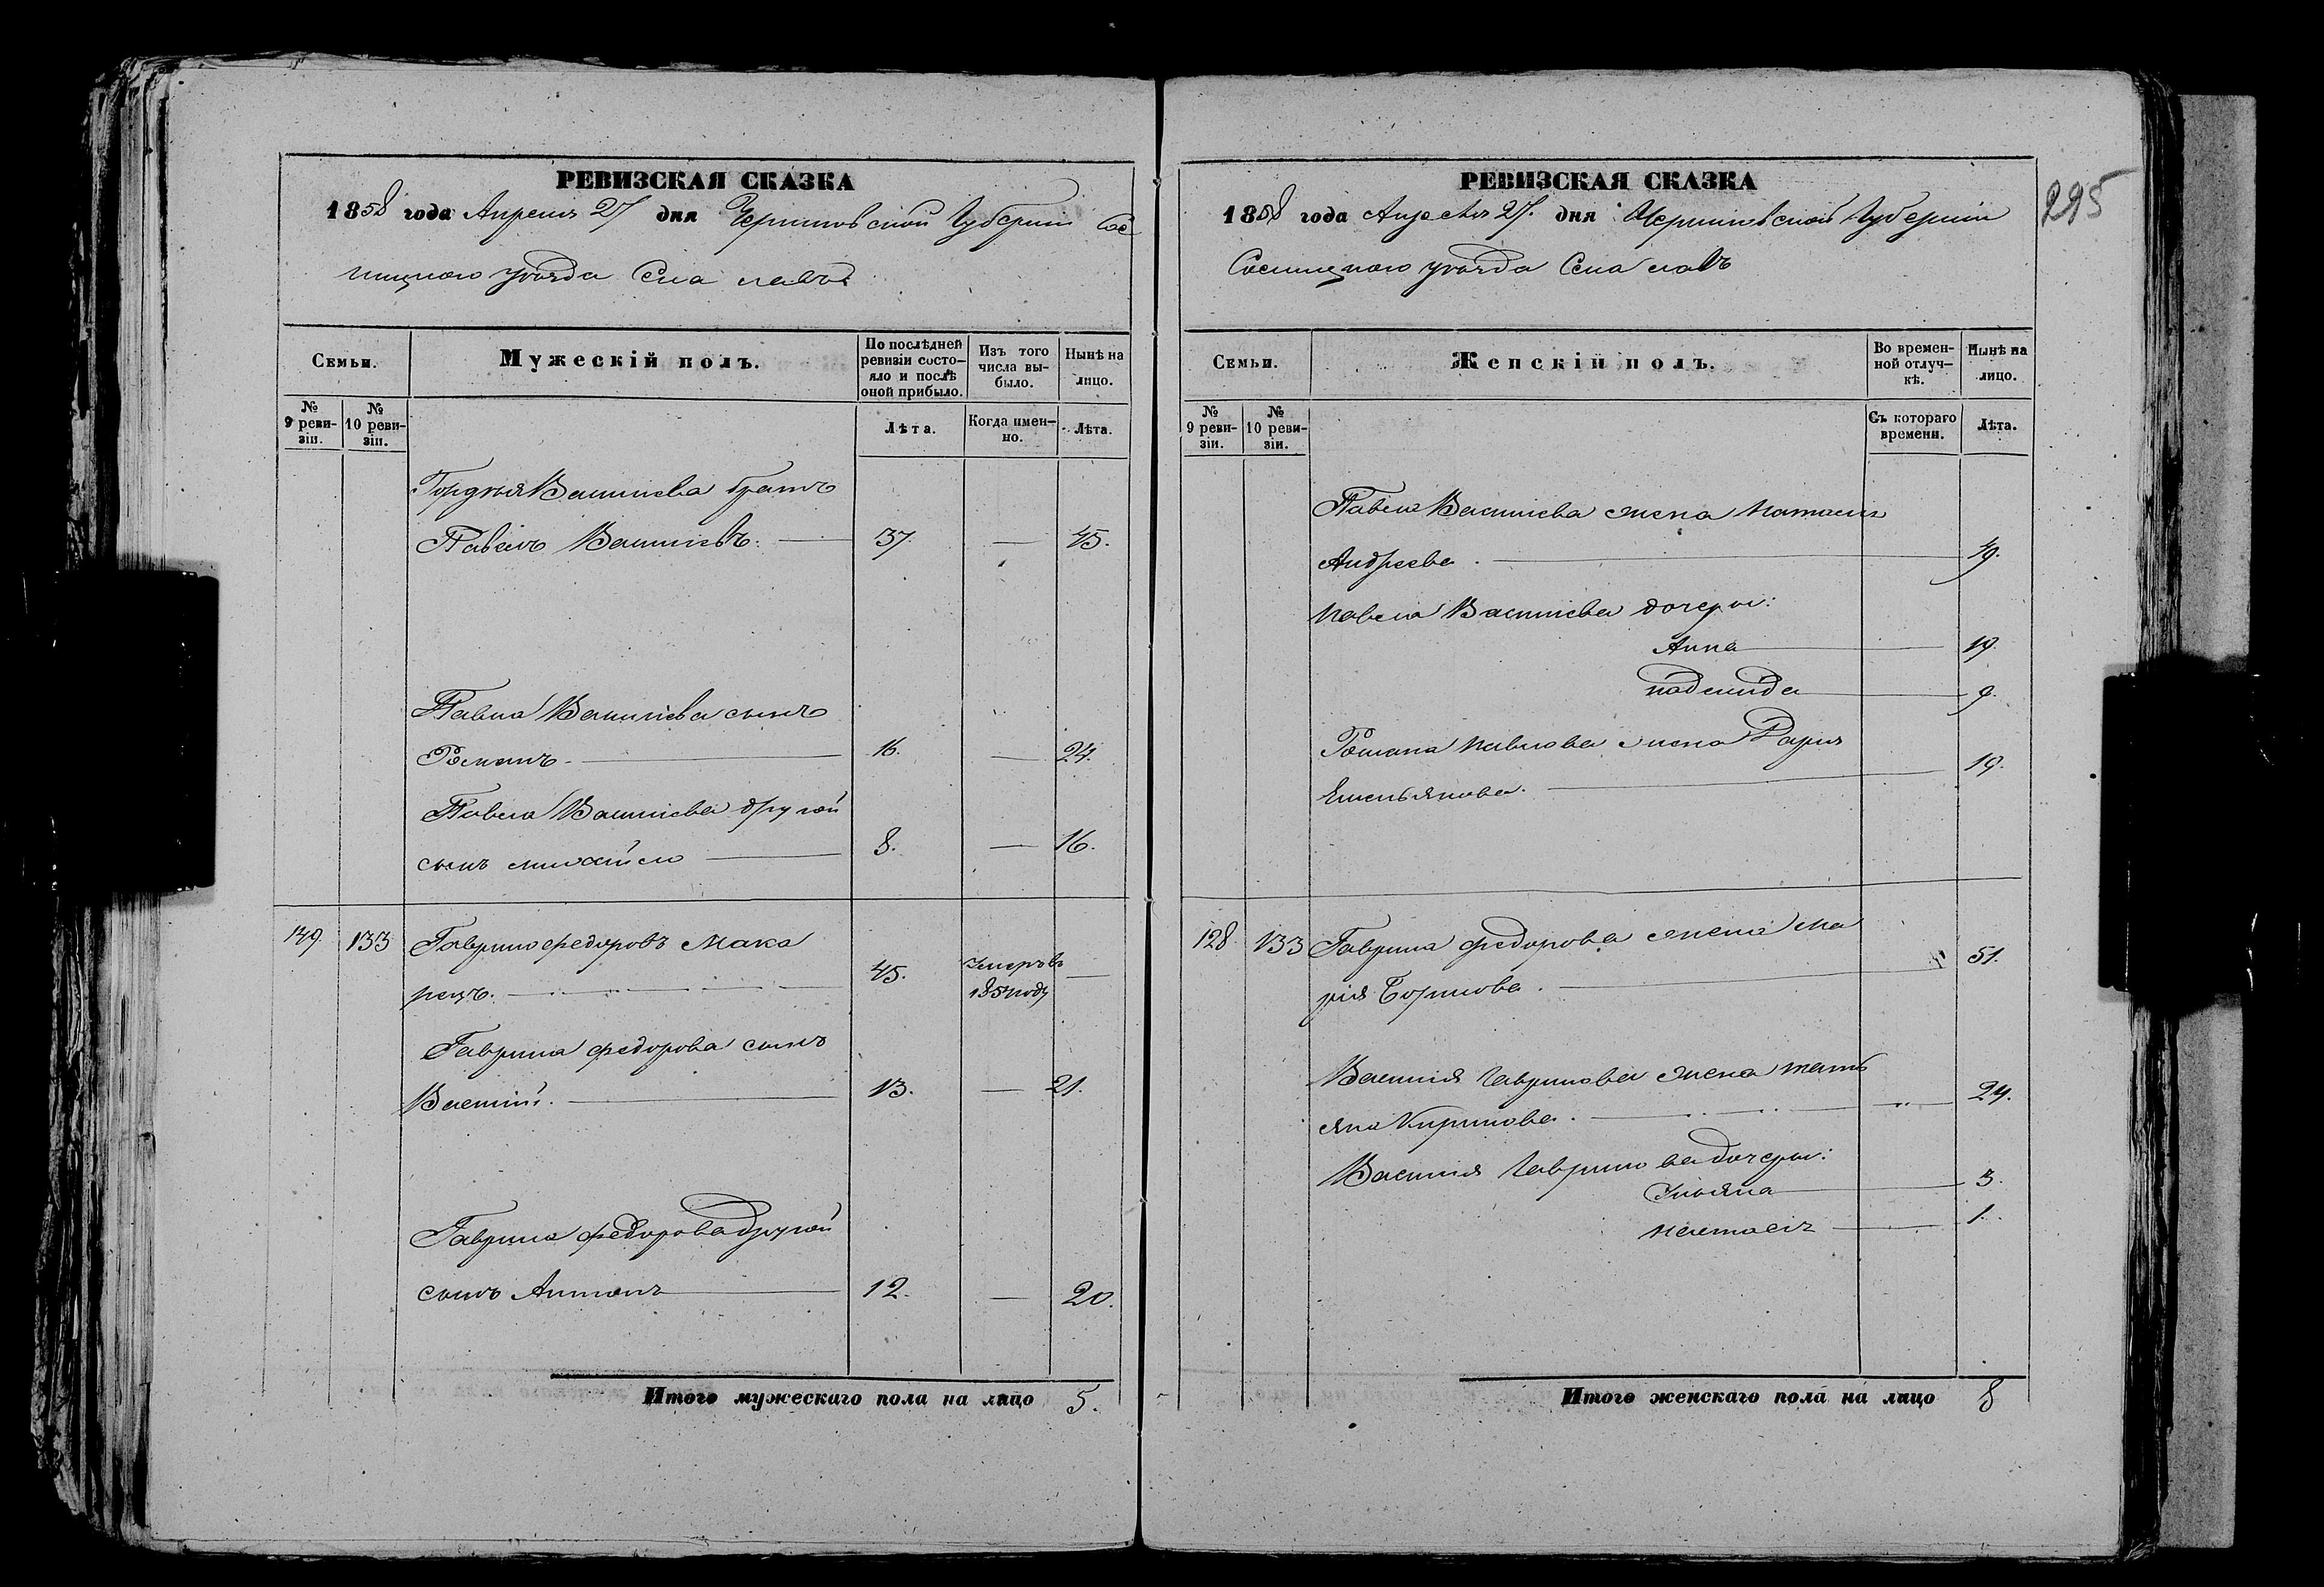 РЕВИЗСКАЯ СКАЗКА
1858 года Апреля 27 дня Черниговской Губерніи Сос
ницкаго уѣзда Села
Семьи.
Мужескій полъ.
По послѣдней ревизіи состо-яло и послѣ оной прибыло.
Изъ того числа вы-было.
Нынѣ на лицо.
№ 9 реви-зіи.
№ 10 реви-зіи.
Лѣта.
Когда имен-но.
Лѣта.
Гордѣя Василіева братъ
Павелъ Василіевъ. 37. — 45.
Павла Василіева сынъ
Романъ 16. — 24.
Павла Василіева другой
сынъ Михайло 8. — 16.
149. 133 Гаврило Федоровъ Мака
рецъ. 45. Умеръ въ 185 году —
Гаврила Федорова сынъ
Василій. 13. — 21.
Гаврила Федорова другой
сынъ Антонъ 12. — 20.
Итого мужескаго пола на лицо 5.
295
РЕВИЗСКАЯ СКАЗКА
1858 года Апреля 27. дня Черниговской Губерніи
Сосницкаго уѣзда Села
Семьи.
Женскій полъ.
Во времен-ной отлуч-кѣ.
Нынѣ на лицо.
№ 9 реви-зіи.
№ 10 реви-зіи.
Съ котораго времени.
Лѣта.
Павла Василіева жена Наталія
Андреева. 49.
Павла Василіева дочери:
Анна 19.
Надежда 9.
Романа Павлова жена Дарія
Емельянова. 19.
128 133 Гаврила Федорова жена Ма
рія Борисова. 51.
Василія Гаврилова жена Тать
яна Кирилова. 24.
Василія Гаврилова дочери:
Ульяна 3.
Настасія 1.
Итого женскаго пола на лицо 8